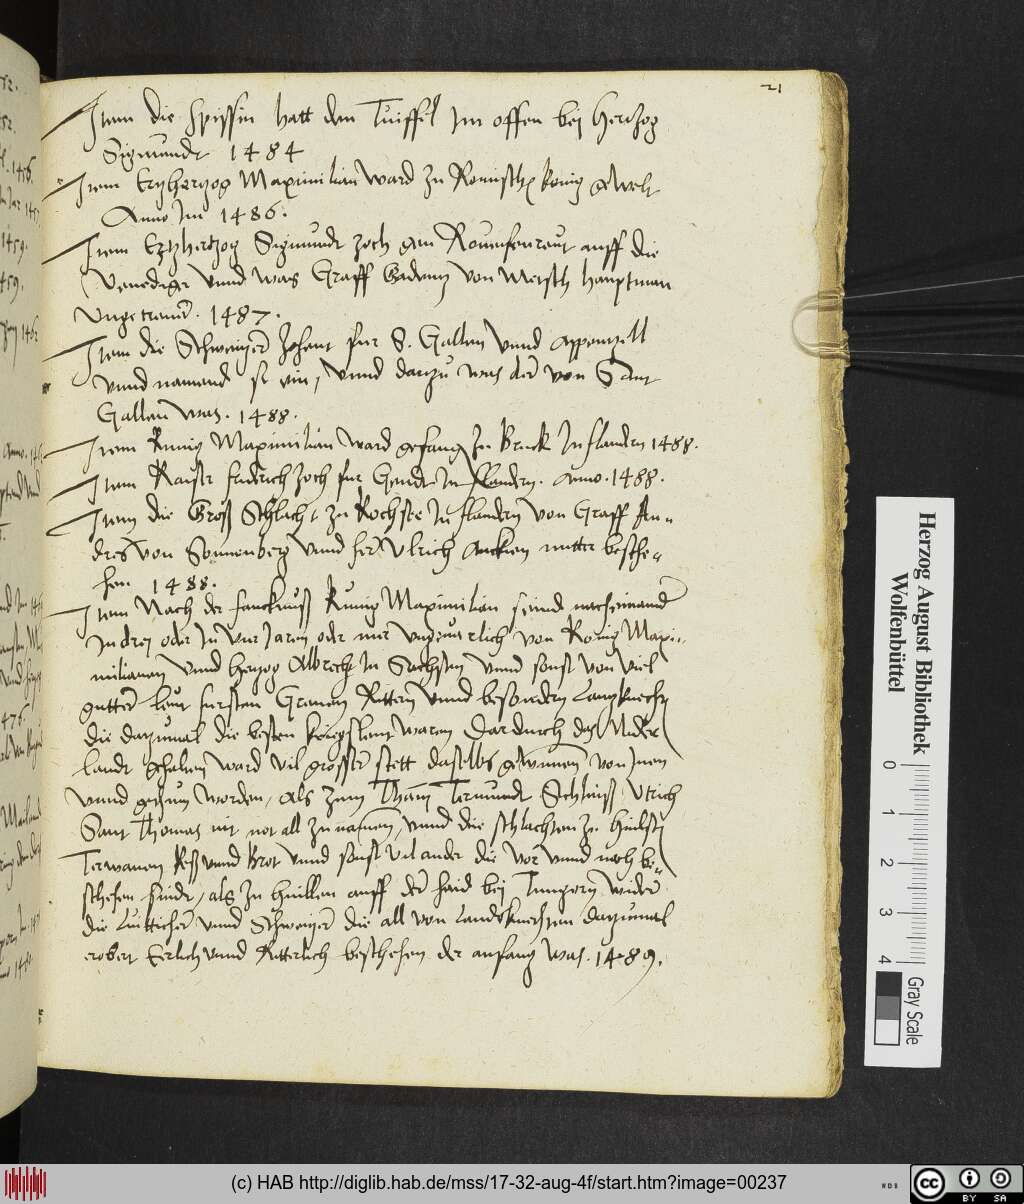 21
Item die spissin hatt den Tuiffel Im offen bej Hertzog
Sigmundt 1484
Item Ertzhertzog Maximilian ward zu Romisch konig gewelt
Anno Im 1486.
Item Ertzhertzog Sigmundt zoch gen Rouenfereut auff die
Venediger vnnd was Graff von Metsch hauptman
Vngetrauer. 1487.
Item die Schweitzer zohent fur S. Gallen vnnd Appenzell
vnnd namend sy ein, vnnd dartzu was der von Sant
Gallen was. 1488.
Item Kunig Maximilian ward gefang zu Bruck In flandern 1488.
Item Kaiser friderich zoch fur Gendt In flandern. Anno. 1488.
Item die Groß Schlacht zu In flandern von Graff An=
dres von Sonnenberg vnnd her Vlrich mitter besche=
hen 1488.
Item Nach der fancknuß Kunig Maximilian seind nacheinander
In drej oder In vier Jaren oder mer vngeuerlich von Konig Maxi=
milianen vnnd hertzog Albrecht In Sachsen vnnd sonst von viel
gutter leut fursten Grauen Rittern vnnd besondern Lantzknecht
die dartzumal die besten kriegsleut waren Dardurch das Nider
landt behalten ward vil grosser stett daselbs gewunnen von Inen
vnnd worden, als zum Tham Termundt Schluiß Vtrich
Sant Thomas mit not all zu namen, vnnd die schlachten zu
Terwanen vnnd Brot vnnd sonst vil ander die vor vnnd noch be=
schehen sindt, als zu huillen auff der haid bej Tungern wider
die Lutticher vnnd Schweitzer die all von Landsknechten dartzumal
erobert Eerlich vnnd Ritterlich beschehen der anfang was. 1489.
Herzog August Bibliothek
Wolfenbüttel
0 1 2 3 4
Gray Scale
(c) HAB http://diglib.hab.de/mss/17-32-aug-4f/start.htm?image=00237
WDB
cc BY SA